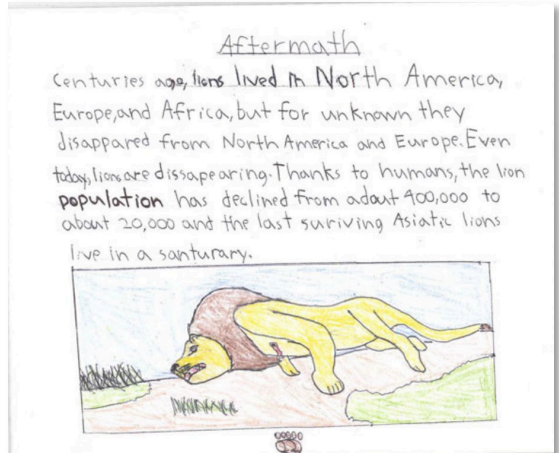 Aftermath
Centuries ago, lions lived in North America,
Europe, and Africa, but for unknown they
disappared from North America and Europe. Even
today, lions are dissapearing. Thanks to humans, the lion
population has declined from adout 400,000 to
about 20,000 and the last suriving Asiatic lions
live in a santurary.